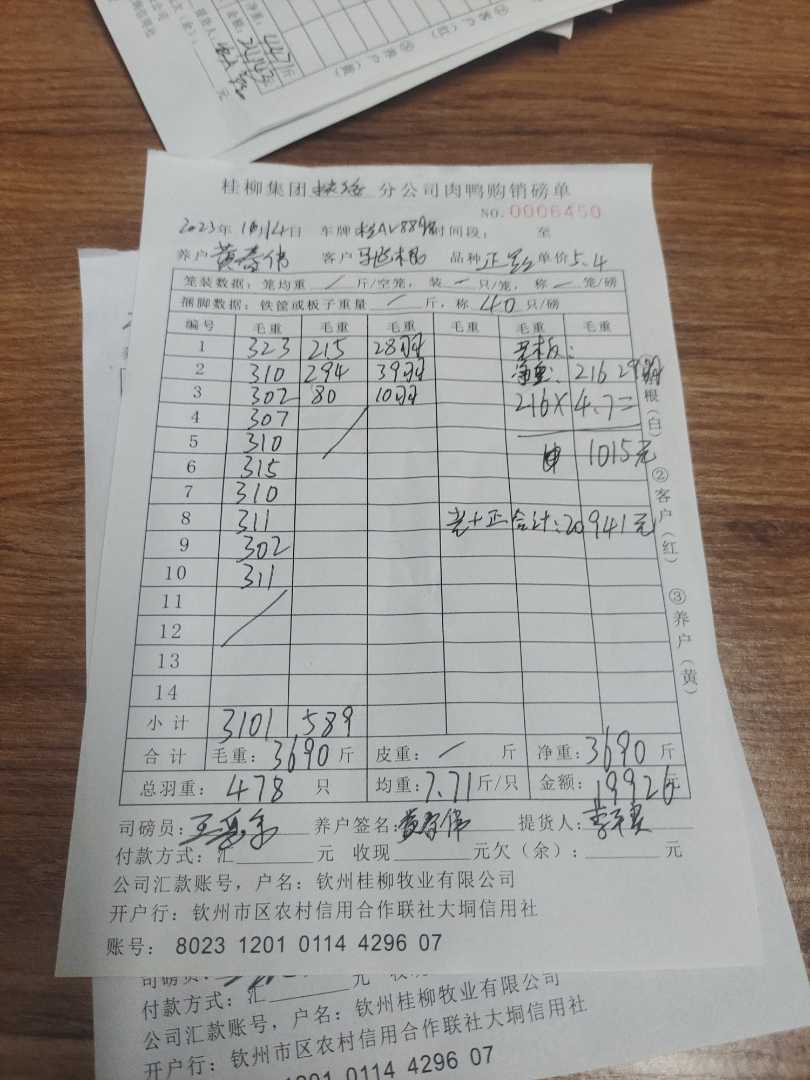 447斤
24143元
② 客户（红）
③ 养户（黄）
元
桂柳集团扶绥分公司肉鸭购销磅单
NO.0006450
2023年10月14日 车牌 时间段： 至
养户 黄春伟 客户 品种 正 单价5.4
笼装数据：笼均重 / 斤/空笼，装 一 只/笼，称 一 笼/磅
捆脚数据：铁筐或板子重量 / 斤，称 40 只/磅
编号 毛重 毛重 毛重 毛重 毛重 毛重
1 323 215 28羽
2 310 294 39羽 216 29羽
3 302 80 10羽 216×4.7=
4 307
5 310 1015元
6 315
7 310
8 311 光+正合计：20941元
9 302
10 311
11
12
13
14
根（白）
② 客户（红）
③ 养户（黄）
小计 3101 589
合计 毛重：3690斤 皮重：/ 斤 净重：3690斤
总羽重：478 只 均重：7.71斤/只 金额：19926元
司磅员： 养户签名：黄春伟 提货人：
付款方式：汇 元 收现 元欠（余）： 元
公司汇款账号，户名：钦州桂柳牧业有限公司
开户行：钦州市区农村信用合作联社大垌信用社
账号：8023 1201 0114 4296 07
司磅员：
付款方式：汇 元 收现
公司汇款账号，户名：钦州桂柳牧业有限公司
开户行：钦州市区农村信用合作联社大垌信用社
1201 0114 4296 07